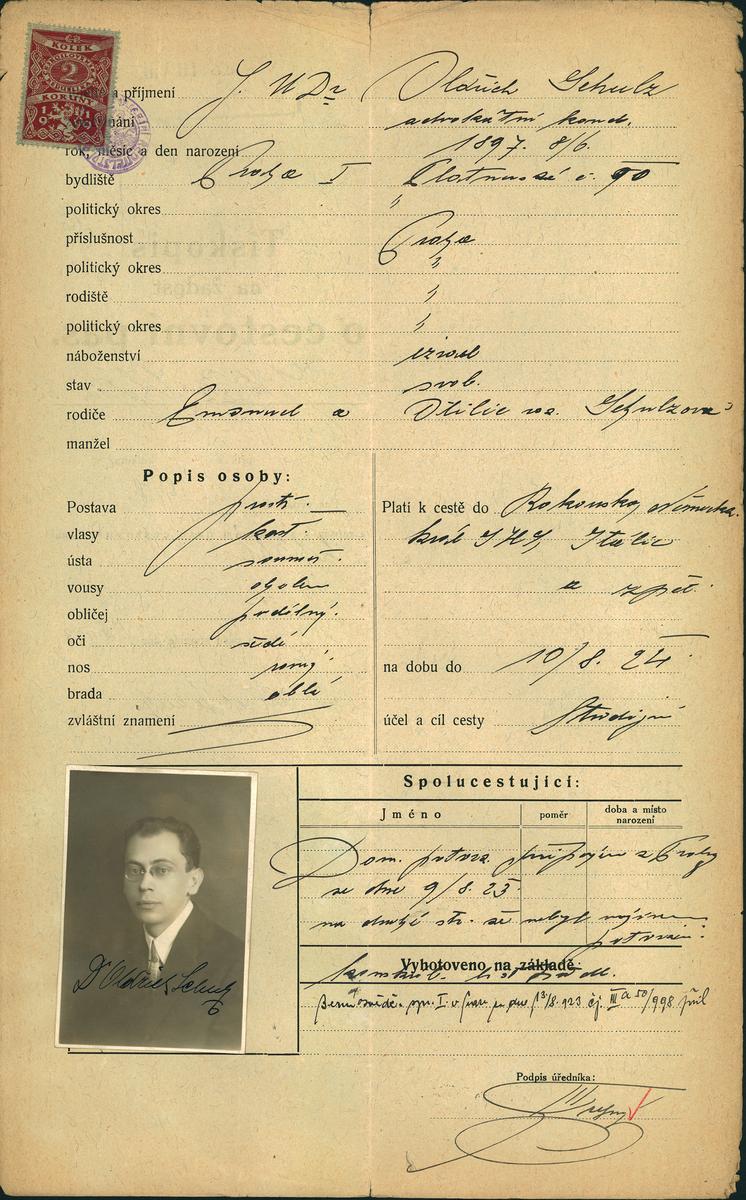 KOLEK
2
KORUNY
a příjmení J. U Dr Oldřich Schulz
advokátní kond.
rok, měsíc a den narození 1897. 8/6.
bydliště Praha I Platnerská č. 90
politický okres "
příslušnost Praha
politický okres "
rodiště "
politický okres "
náboženství israel
stav svob.
rodiče Emanuel a Otilie roz. Schulzova
manžel
Popis osoby:
Postava prostř.
vlasy kašt
ústa souměr.
vousy oholen
obličej podélný.
oči šedé
nos rovný
brada oblá
zvláštní znamení
Platí k cestě do Rakouska, Německa,
král. SHS, Italie
a zpět.
na dobu do 10/8. 24
účel a cíl cesty Studijní
Spolucestující:
Jméno poměr doba a místo narození
Dom. potvrz. připojen z Prahy
ze dne 9/8. 23
na druhé str. se nebyl
potvrzen.
Vyhotoveno na základě
III a 50/998
Podpis úředníka:
Dr Oldřich Schulz